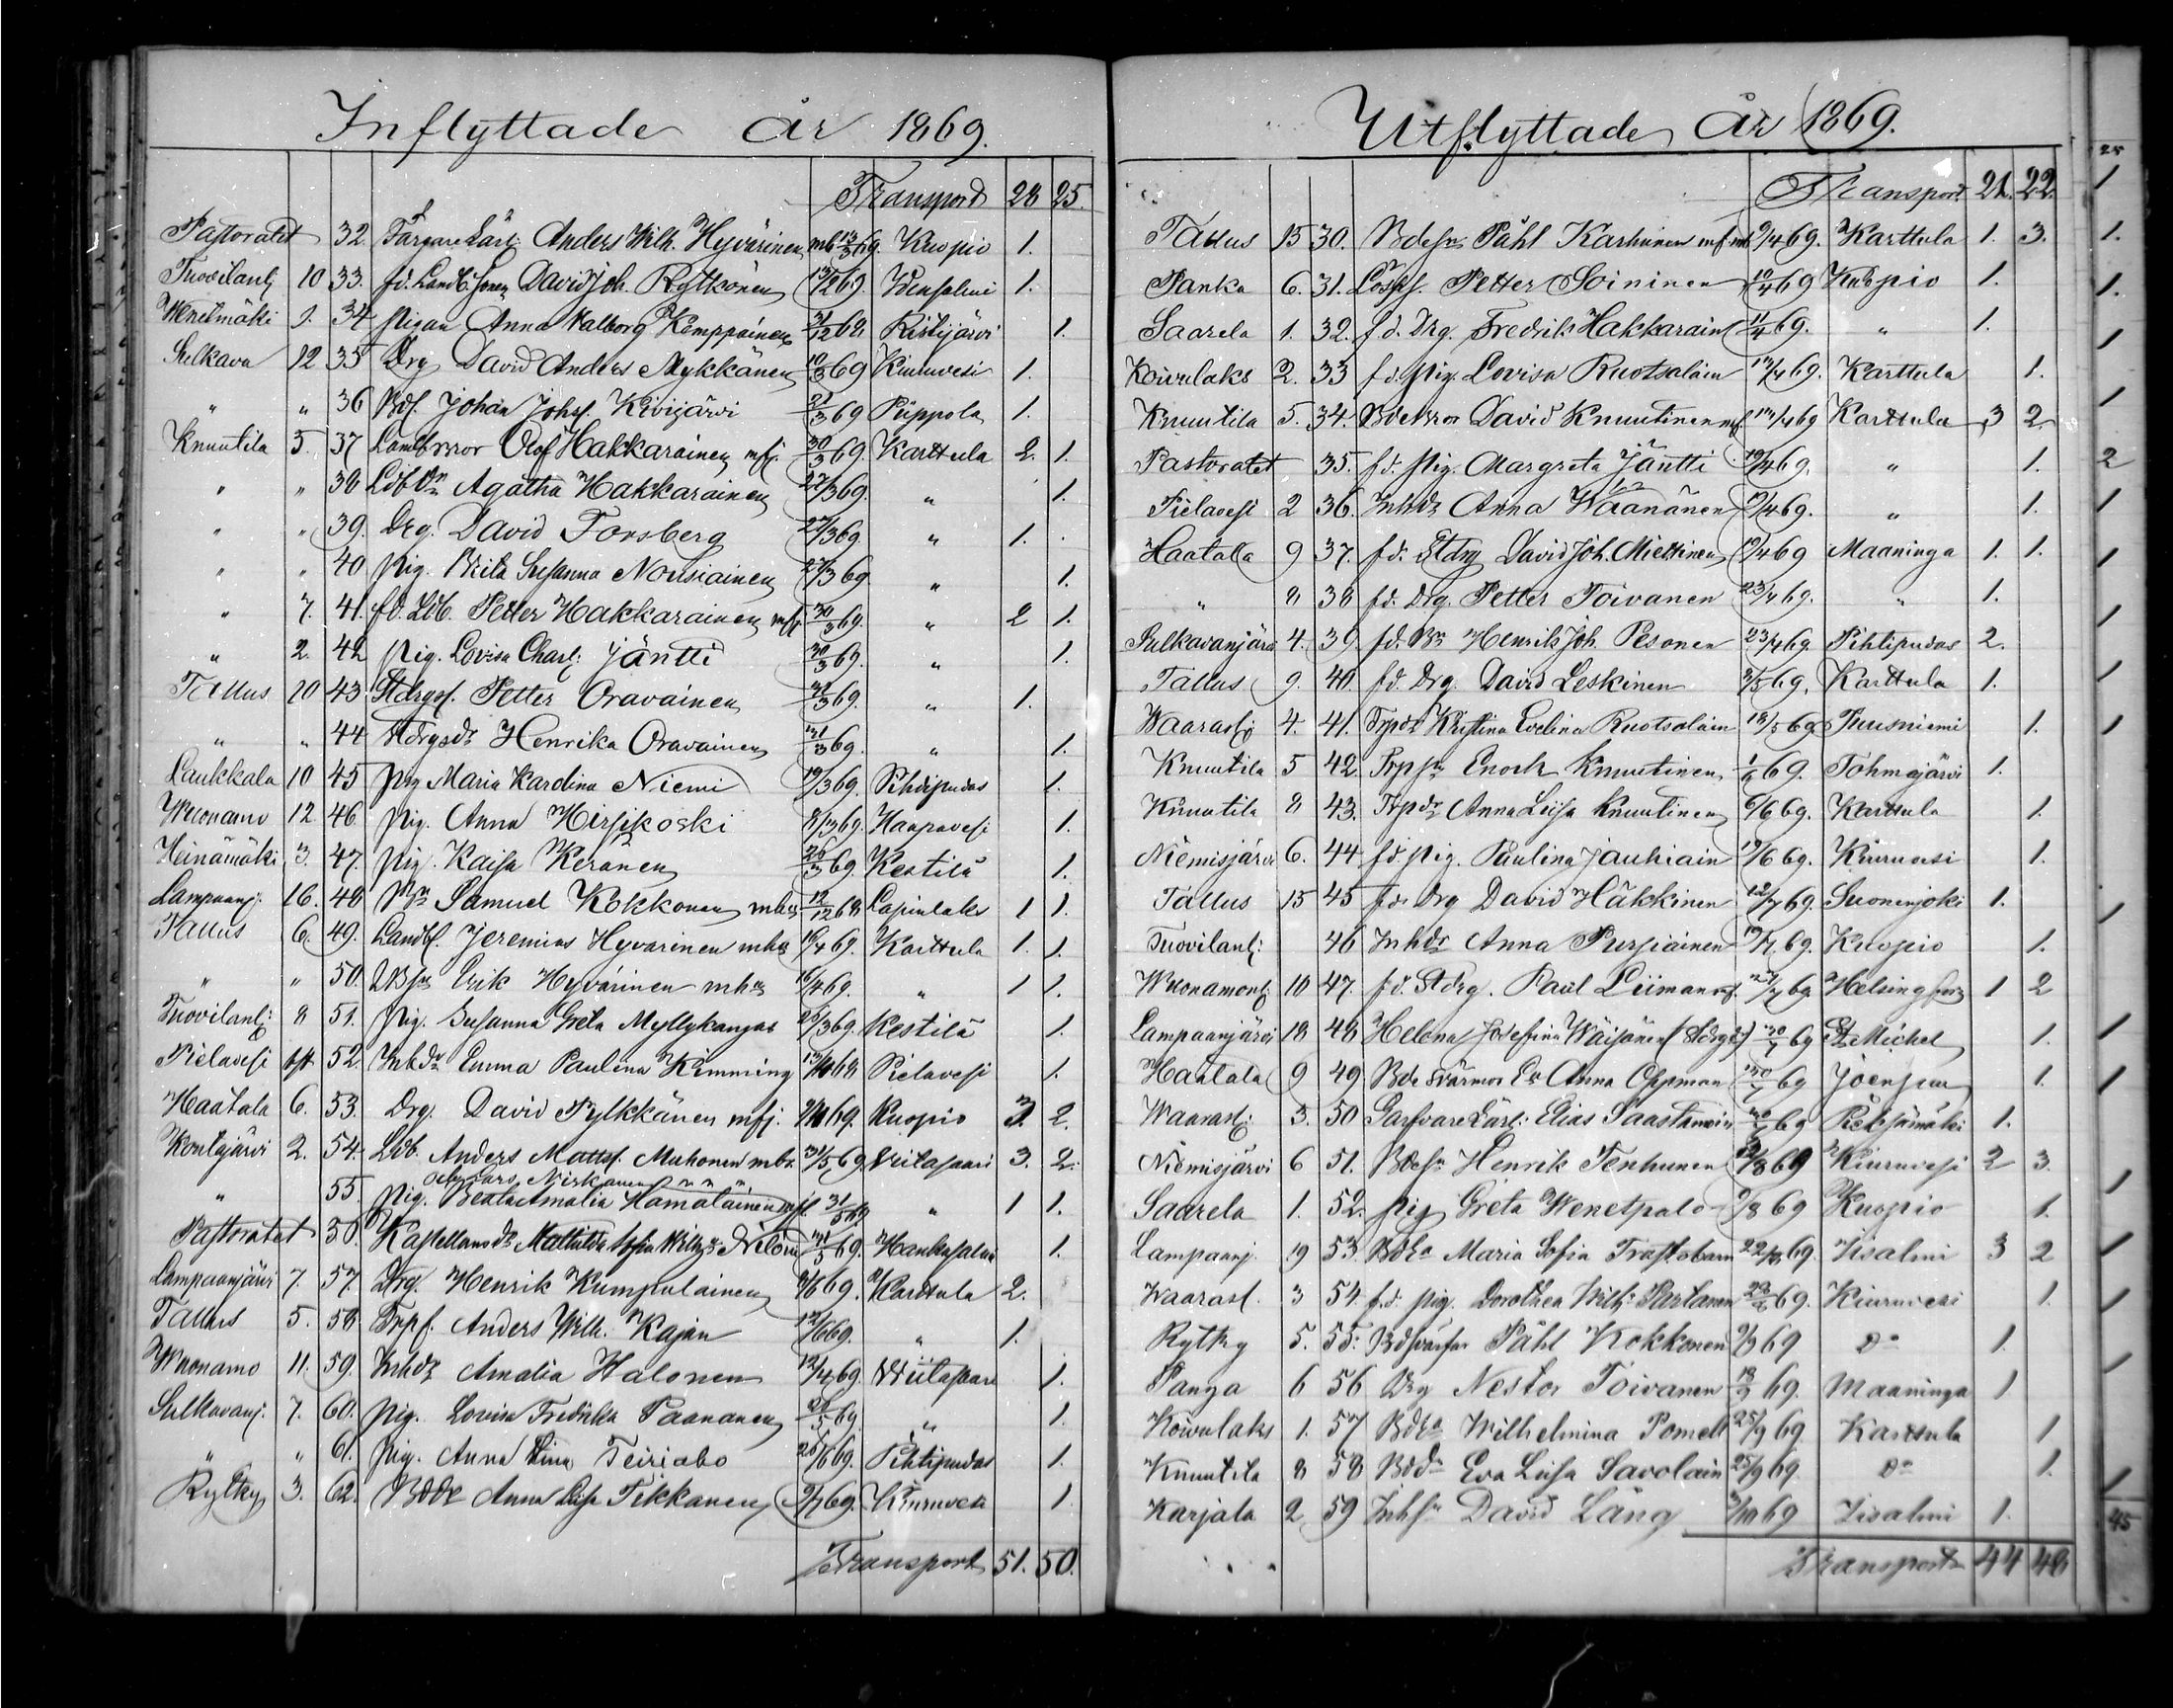 Inflyttade år 1869.
Transport 28 25.
Pastoratet 32 Färgare Lärl. Anders Wilh. Hyvärinen mb 13/3 69. Kuopio 1.
Tuovilanl. 10 33. fd. Landb. sonen David Joh. Rytkönen 13/2 69. Idensalmi 1.
9. 34 pigan Anna Walborg Kemppainen 31/12 68 Ristijärvi 1.
Sulkava 12 35 Drg David Anders Mykkänen 10/3 69 Kiuruvesi 1.
" " 36 Bdf. Johan Johsf. Kivijärvi 21/3 69 Piippola 1.
Knuutila 5. 37 Landb. bror Olof Hakkarainen mfj. 30/3 69. Karttula 2. 1.
" " 38 Ldb dr Agatha Hakkarainen 27/3 69. " 1.
" " 39. Drg. David Forsberg 27/3 69 " 1.
" " 40 pig. Brita Susanna Nousiainen 27/3 69. " 1.
" 7. 41. fd. Ldb. Petter Hakkarainen mfj. 30/3 69. " 2 1.
" 2. 42 pig. Lovisa Charl: Jäntti 30/3 69. " 1.
Tallus 20 43. Stdrgsf. Petter Oravainen 31/3 69. " 1.
" " 44 Stdrgsdr Henrika Oravainen 31/3 69. " 1.
Laukkala 10 45 pig Maria Karolina Niemi 19/3 69. Pihtipudas 1.
Wuonamo 12. 46 pig. Anna Hirsikoski 8/3 69. Haapavesi 1.
Heinämäki 3. 47. pig. Kaisa Keränen 26/3 69 Kestilä 1.
Lampaanj. 16. 48 Bn Samuel Kokkonen mhu 12/12 68 Lapinlaks 1 1.
Tallus 6. 49. Landbf. Jeremias Hyvärinen mhu 16/4 69. Karttula 1. 1.
" " 50. Erik Hyvärinen mhu 16/4 69. " 1 1.
Tuovilanl: 8 51. pig. Susanna Greta Myllykangas 26/3 69. Kestilä 1.
Pielavesi 52. Inhdr Emma Paulina Kimming 68 Pielavesi 1.
Haatala 6. 53. Drg. David Pylkkänen mfj. 69. Kuopio 3. 2.
Koutajärvi 2. 54. Ldb. Anders Mattsf. Muhonen mbr. 31/5 69 Viitasaari 3. 2.
" 55. pig. Beata Amalia Hämäläinen 31/5 69 " 1 1
Pastoratet 56. Kastellansdr Mathilda Sofia 31/5 69. Hankasalmi 1.
Lampaanjärvi 7. 57. Drg. Henrik Kumpulainen 69. Karttula 2.
Tallus 5. 58. Trpf. Anders Wilh. Kajan 12/6 69. " 1.
Wuonamo 11. 59. Inhdr Amalia Halonen 12/4 69. Wiitasaari 1.
Sulkavanj. 7. 60. pig. Lovisa Fredrika Paananen 24/5 69 " 1.
" " 61. pig. Anna Lina 26/6 69. Pihtipudas 1.
Rytky 3. 62. Bddr Anna Lisa Tikkanen 9/7 69. Kiuruvesi 1.
Transport 51. 50.
Utflyttade År 1869.
Transport 21. 22.
Tallus 15 30. Bdesn Påhl Karhunen 9/4 69. Karttula 1. 3.
Panka 6. 31. Petter Soininen 10/4 69 Kuopio 1.
Saarela 1. 32. f.d. Drg. Fredrik Hakkarain 11/4 69. " 1.
Koivulaks 2. 33 f.d. pig. Lovisa Ruotsalain 13/4 69. Karttula 1.
Knuutila 5. 34. Bdebror David Knuutinen mf. 14/4 69 Karttula 3 2
Pastoratet 35. f.d. pig. Margreta Jäntti 19/4 69. " 1.
Pielavesi 2 36. Inhdr Anna Wäänänen 19/4 69. " 1.
Haatala 9 37. f.d. Stdrg David Joh. Miettinen 19/4 69 Maaninga 1. 1.
" 8 38 f.d. Drg. Petter Toivanen 23/4 69. " 1.
Sulkavanjärvi 4. 39. f.d. Bn Henrik Joh. Pesonen 23/4 69. Pihtipudas 2.
Tallus 9. 40. f.d. Drg. David Leskinen 3/5 69. Karttula 1.
Waarasl. 4. 41. Trpdr Kristina Evelina Ruotsalain 18/5 69 Tuusniemi 1.
Knuutila 5 42. Trpsn Enoch Knuutinen 1/6 69. Tohmajärvi 1.
Knuutila 8 43. Trpdr Anna Lisa Knuutinen 6/6 69. Karttula 1.
Niemisjärvi 6. 44 f.d. pig. Paulina Jauhiain 19/6 69. Kiuruvesi 1.
Tallus 15 45 f.d. Drg David Häkkinen 12/7 69. Suonenjoki 1.
Tuovilanl: 46 Inhdr Anna Pursiainen 19/7 69. Kuopio 1.
Wuonamonl. 10 47. f.d. Stdrg. Paul Liiman mf. 24/7 69 Helsingfors 1 2
Lampaanjärvi 18 48 Helena Josefina Wäisänen (Stdrgdr) 30/7 69 St. Michel 1.
Haatala 9 49 Bde svärmor Ea Anna Oppman 30/7 69 Joensuu 1.
Waarasl: 3. 50 Garfvare Lärl: Elias Saastamoin 69 Pieksämäki 1.
Niemisjärvi 6 51. Bdesn Henrik Tenhunen 13/8 69 Kiuruvesi 2 3.
Saarela 1. 52. pig Greta Wenetpalo 9/8 69 Kuopio 1.
Lampaanj. 19 53 Bdea Maria Sofia 22/8 69. Iisalmi 3 2
Waarasl. 3 54. f.d. pig. Dorothea Wilh: Partanen 69. Kiuruvesi 1.
Rytky 5. 55. Bdsvärfar Påhl Kokkonen 9/9 69 Do 1.
Panga 6 56 Drg Nestor Toivanen 18/9 69. Maaninga 1
Koivulaks 1. 57 Bdea Wilhelmina Pomell 25/9 69 Karttula 1
Knuutila 8 58 Bddr Eva Lisa Savolain 25/9 69. Do 1.
Karjala 2 59 Inhsn David Läng 3/10 69 Iisalmi 1.
Transport 44 48